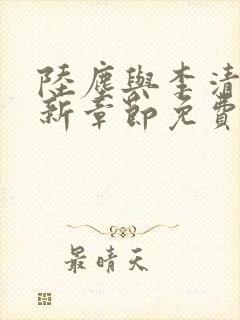 陸塵與李清
新章節免費
最晴天